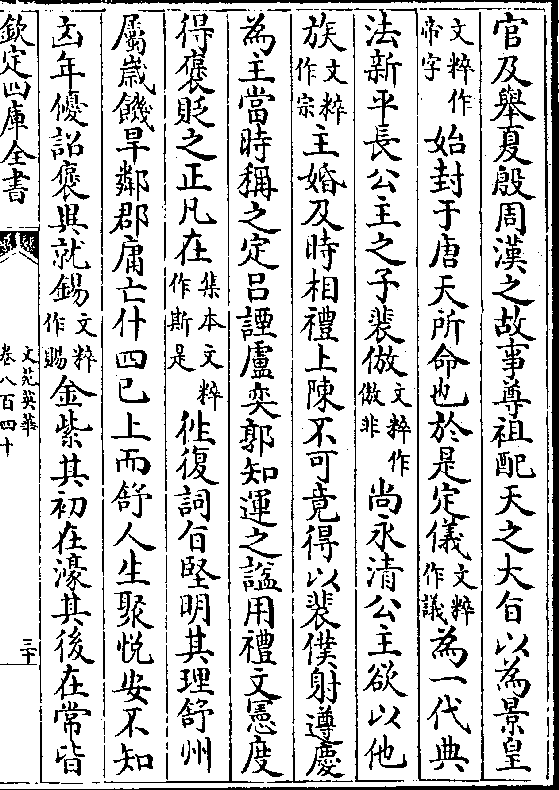 官及舉夏殷周漢之故事尊祖配天之大旨以為景皇
文粹作帝字始封于唐天所命也於是定儀文粹作議為一代典
法新平長公主之子裴倣文粹作倣非尚永清公主欲以他
族文粹作宗主婚及時相禮上陳不可竟得以裴僕射遵慶
為主當時稱之定吕諲盧奕郭知運之謚用禮文憲度
得褒貶之正凡在集本文粹作斯是徃復詞旨堅明其理舒州
屬歲饑旱鄰郡庸亡什四已上而舒人生聚悅安不知
凶年優詔褒異就錫文粹作賜金紫其初在濠其後在常皆
欽定四庫全書
文苑英華
卷八百四十
三十